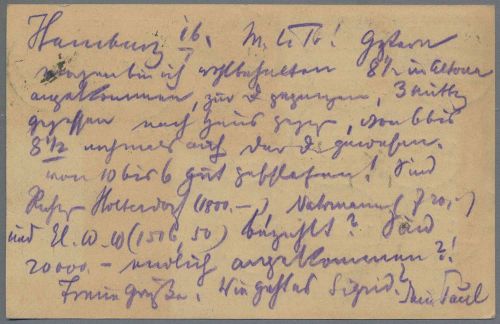 Hamburg 16. M. l. Tr! Gestern
morgen bin ich wohlbehalten 8½ in Altona
angekommen, zur gegangen, 3 Mittag
gegessen nach Haus gegg, von 6 bis
8½ nochmals auf der gewesen.
von 10 bis 6 gut geschlafen! Sind
Holtendorf (1800.—) 20,-)
und El. W. W (1506,50) bezahlt? Sind
20000.— endlich angekommen?!
Treue Grüße. Wie geht es Sigrid? Dein Paul